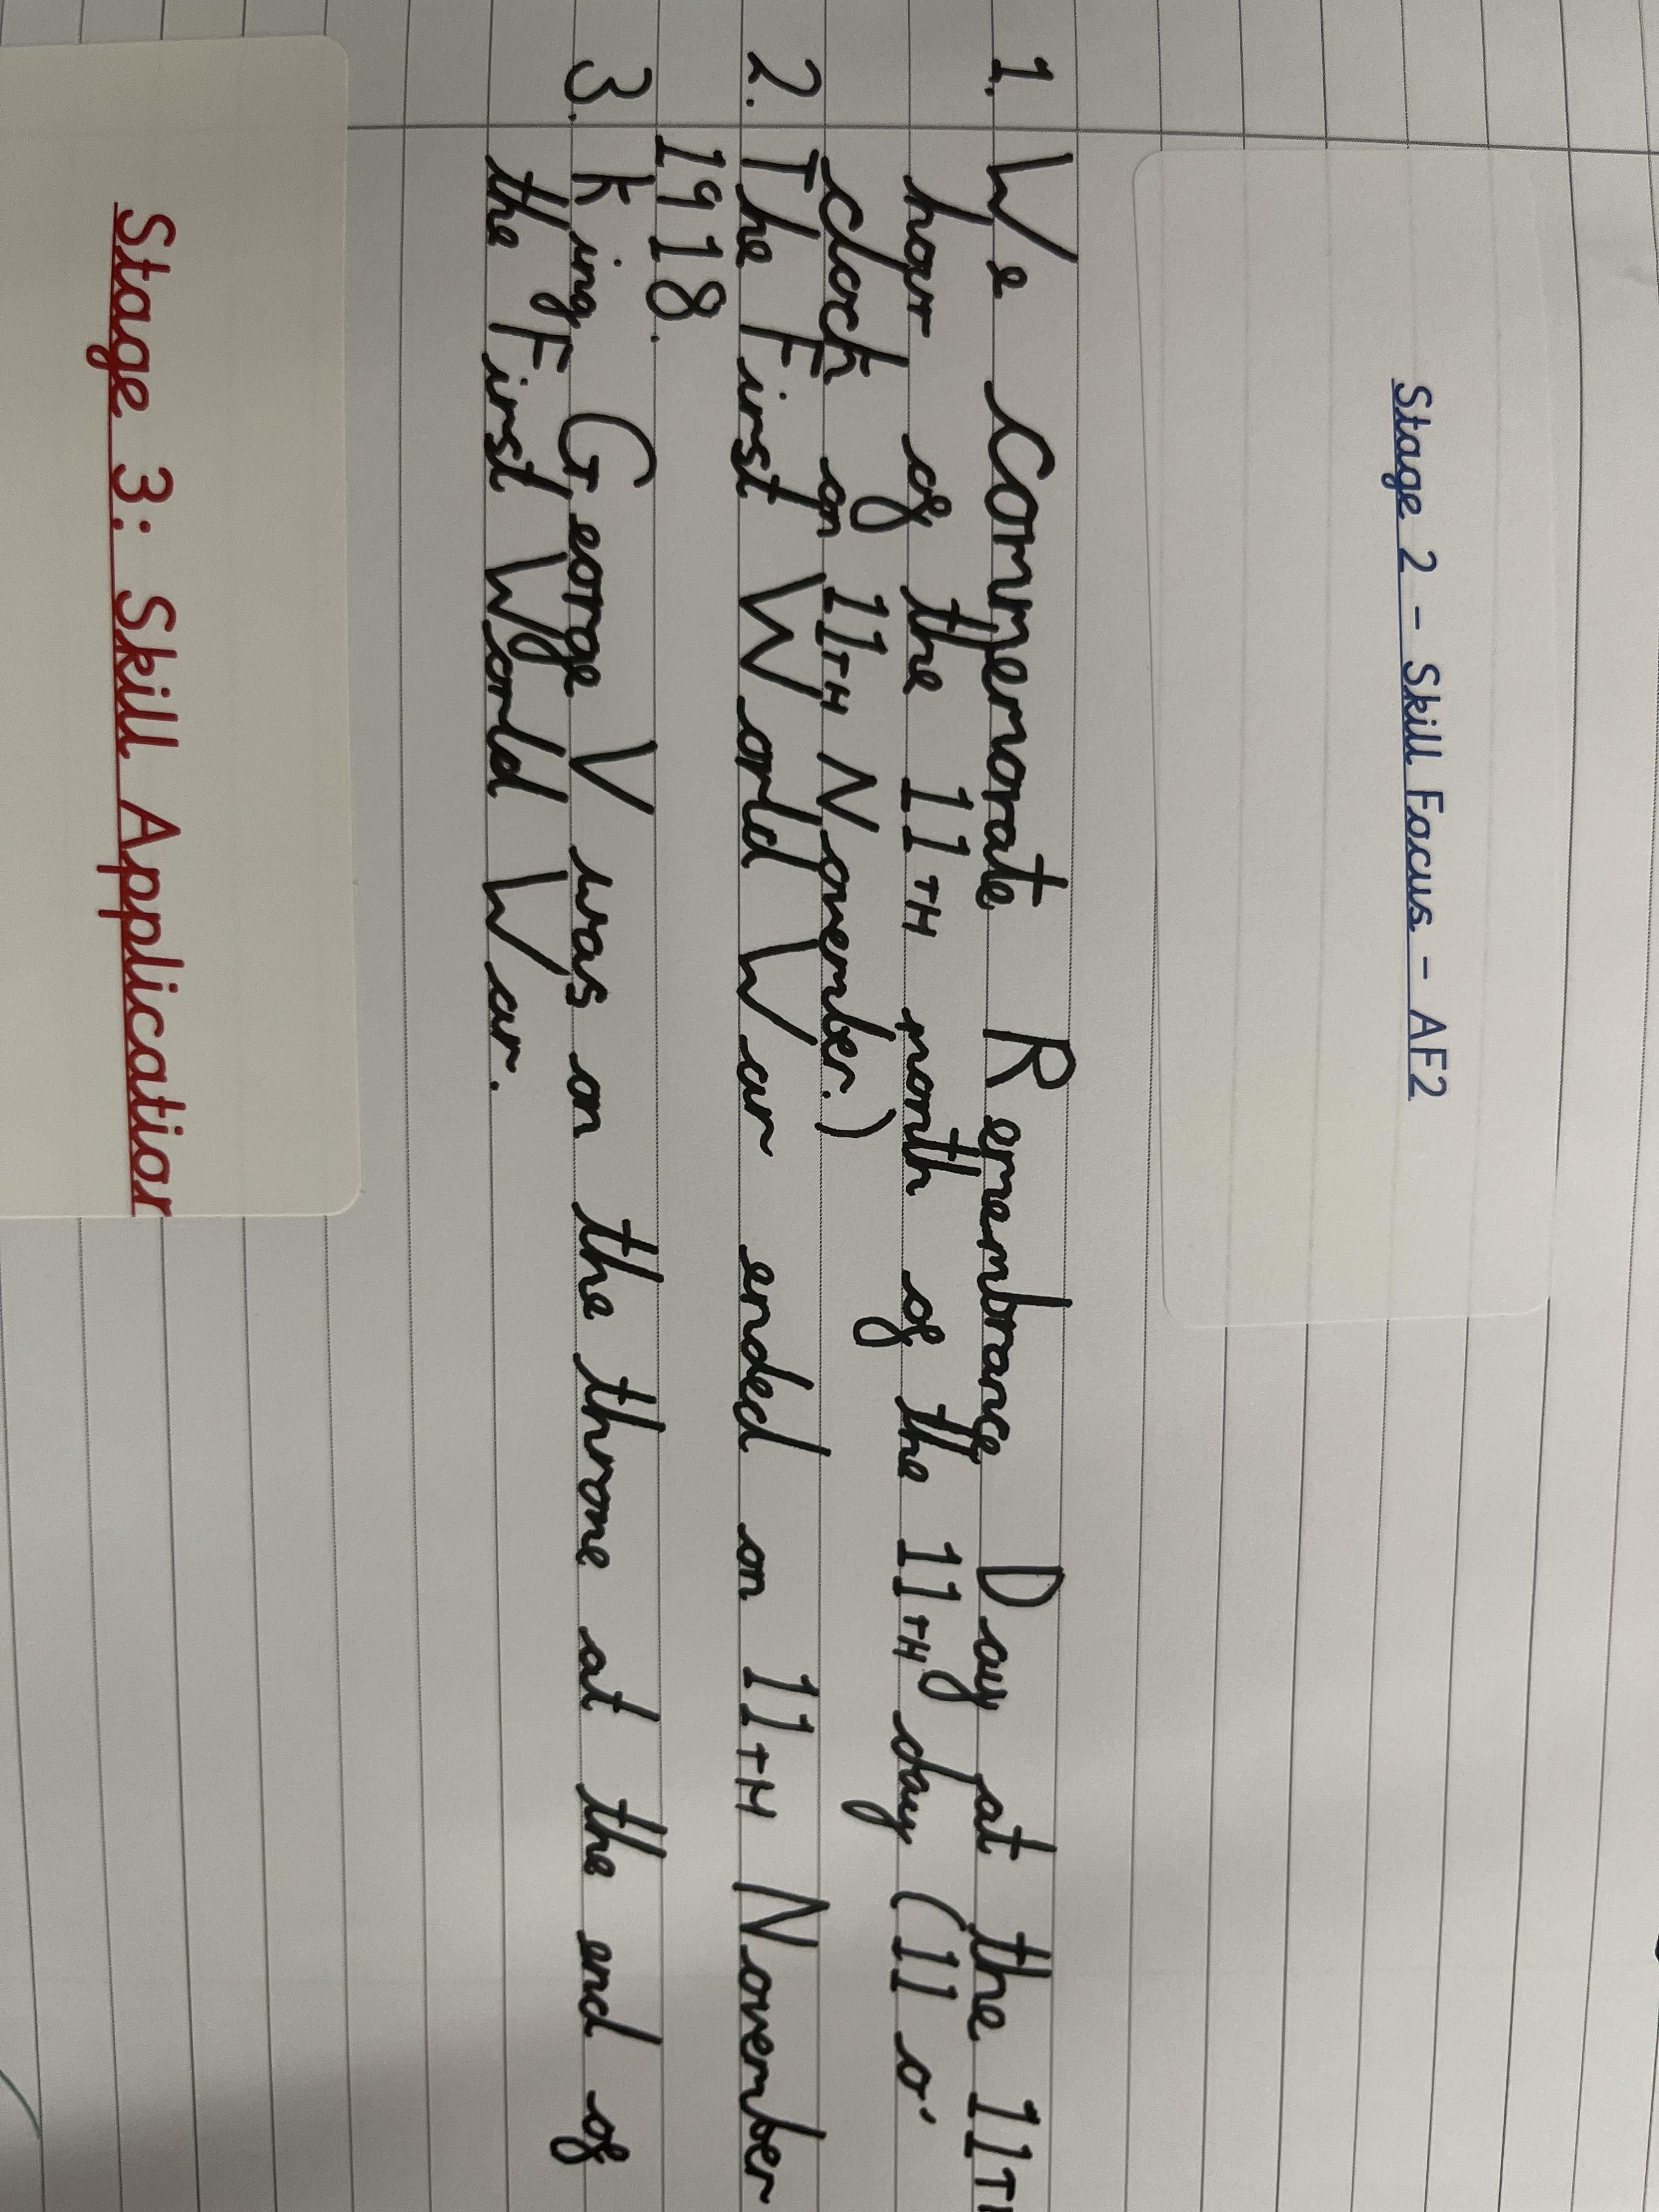 Stage 2 - Skill Focus - AF2
1. We commemorate Remembrance Day at the 11TH
hour of the 11TH month of the 11TH day (11 o'
clock on 11TH November.)
2. The First World War ended on 11TH November
1918.
3. King George V was on the throne at the end of
the First World War.
Stage 3: Skill Application